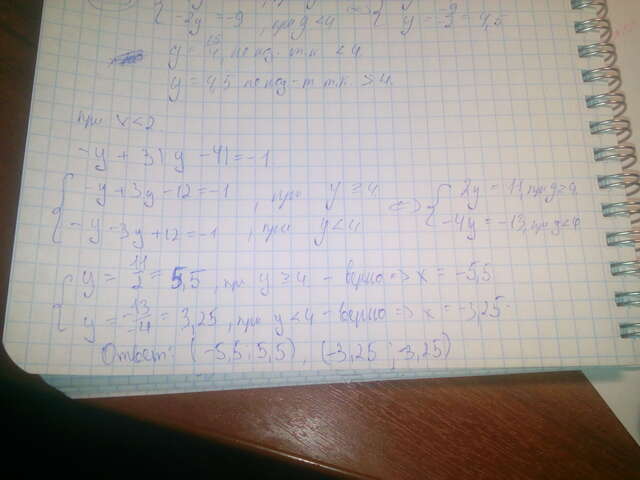 -2y = -9, при y<4 y = -9/-2 = 4,5
y = 15/4, не под-т.к <4
y = 4,5 не под-т т.к. >4
при x<2
-y + 3|y-4| = -1
{ -y+3y-12=-1, при y≥4 <=> { 2y = 11, при y≥4
-y-3y+12=-1, при y<4 -4y = -13, при y<4
{ y = 11/2 = 5,5, при y≥4 - верно => x = -5,5
y = -13/-4 = 3,25, при y<4 - верно => x = -3,25
Ответ: (-5,5; 5,5), (-3,25; 3,25)